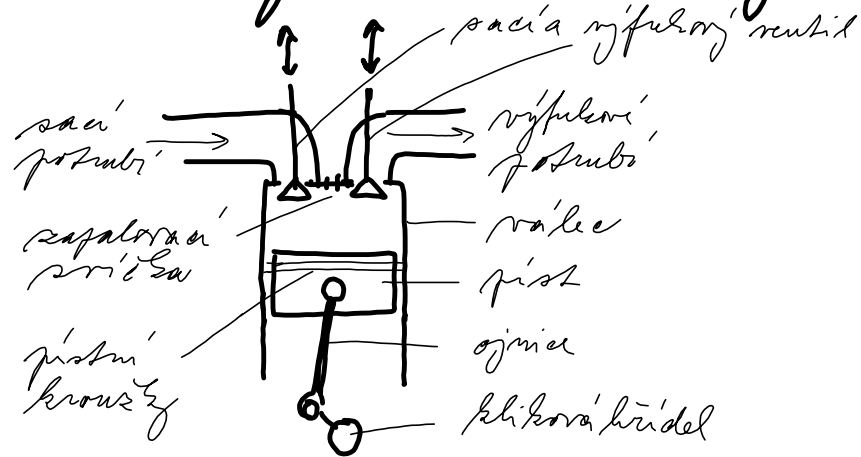 sací a výfukový ventil
sací
potrubí
výfukové
potrubí
zapalovací
svíčka
válec
píst
pístní
kroužky
ojnice
kliková hřídel